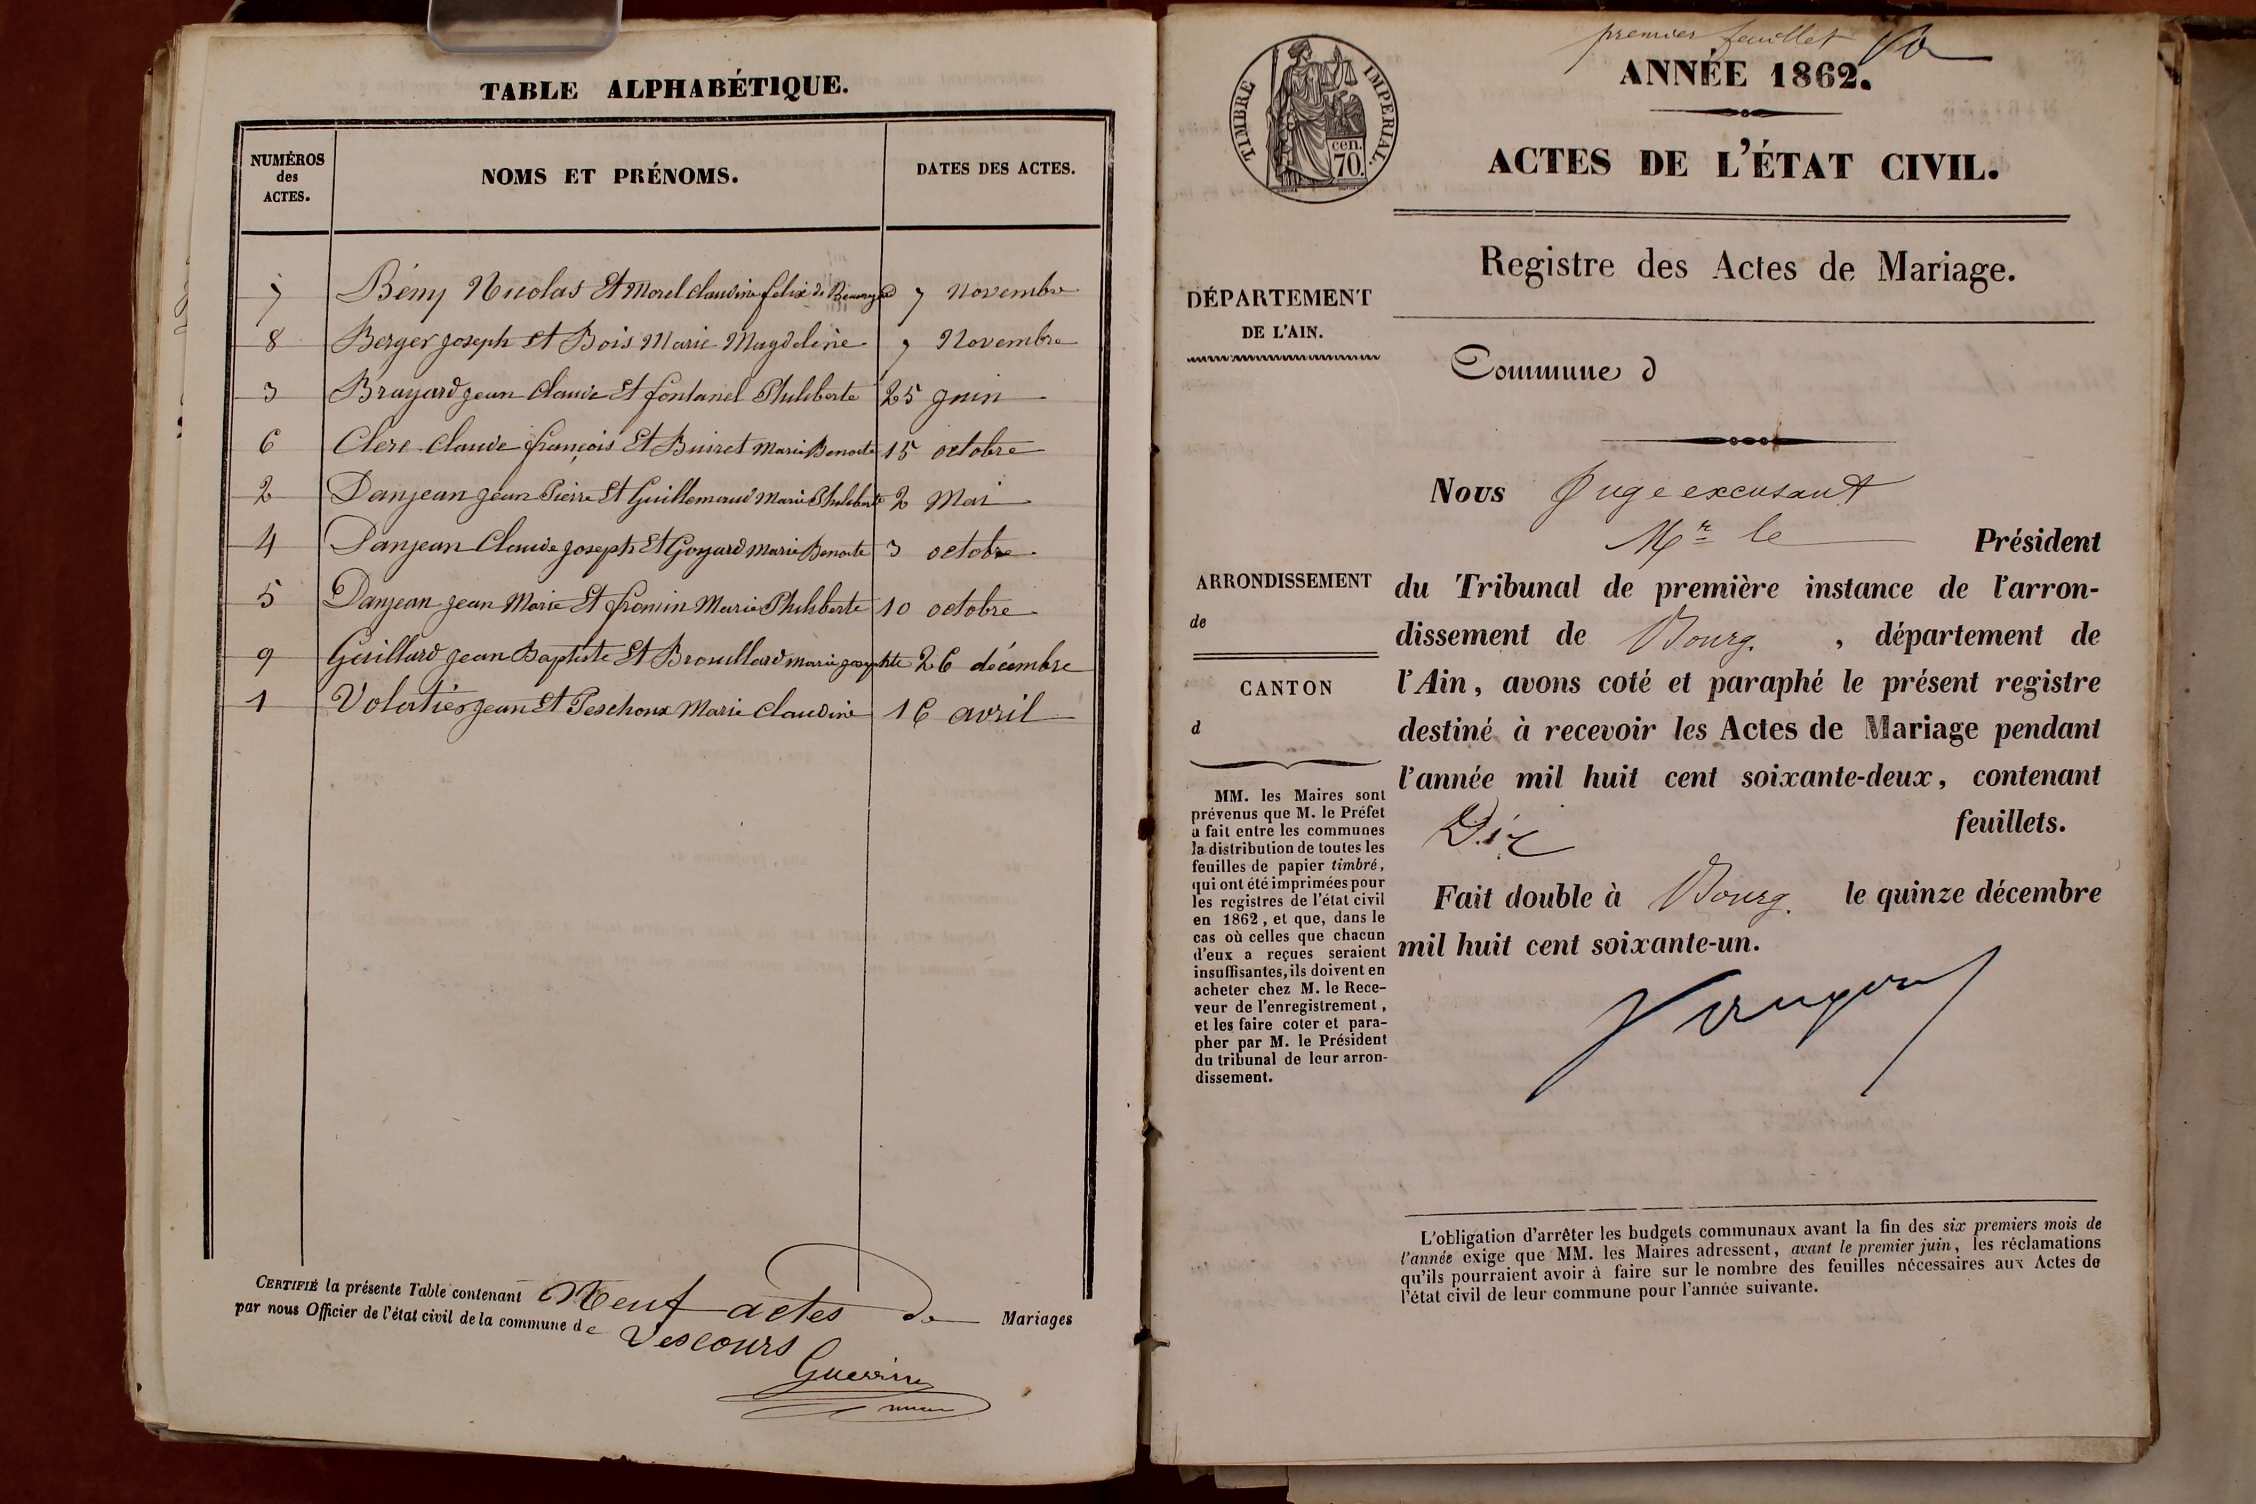 TABLE ALPHABÉTIQUE.
NUMÉROS
des
ACTES.
NOMS ET PRÉNOMS.
DATES DES ACTES.
7 Bény Nicolas Et Morel Claudine felix de 7 Novembre
8 Berger Joseph Et Bois Marie Magdeleine 7 Novembre
3 Brayard Jean Claude Et fontanel Philiberte 25 Juin
6 Clerc Claude françois Et Buiret Marie Benoite 15 octobre
2 Danjean Jean Pierre Et Guillemaud Marie Philiberte 2 Mai
4 Danjean Claude Joseph Et Goyard Marie Benoite 3 octobre
5 Danjean Jean Marie Et fromin Marie Philiberte 10 octobre
9 Guillard Jean Baptiste Et Brouillard Marie Josephte 26 décembre
1 Volatier Jean Et Peschoux Marie Claudine 16 avril
CERTIFIÉ la présente Table contenant Neuf actes de Mariages
par nous Officier de l'état civil de la commune de Vescours
Guerrin
premier feuillet
TIMBRE IMPERIAL.
cen.
70.
ANNÉE 1862.
ACTES DE L'ÉTAT CIVIL.
Registre des Actes de Mariage.
DÉPARTEMENT
DE L'AIN.
Commune d
Nous Juge excusant
Mr le Président
ARRONDISSEMENT
de
CANTON
d
du Tribunal de première instance de l'arron-
dissement de Bourg. , département de
l'Ain, avons coté et paraphé le présent registre
destiné à recevoir les Actes de Mariage pendant
l'année mil huit cent soixante-deux, contenant
Dix feuillets.
Fait double à Bourg. le quinze décembre
mil huit cent soixante-un.
MM. les Maires sont
prévenus que M. le Préfet
a fait entre les communes
la distribution de toutes les
feuilles de papier timbré,
qui ont été imprimées pour
les registres de l'état civil
en 1862, et que, dans le
cas où celles que chacun
d'eux a reçues seraient
insuffisantes, ils doivent en
acheter chez M. le Rece-
veur de l'enregistrement,
et les faire coter et para-
pher par M. le Président
du tribunal de leur arron-
dissement.
L'obligation d'arrêter les budgets communaux avant la fin des six premiers mois de
l'année exige que MM. les Maires adressent, avant le premier juin, les réclamations
qu'ils pourraient avoir à faire sur le nombre des feuilles nécessaires aux Actes de
l'état civil de leur commune pour l'année suivante.